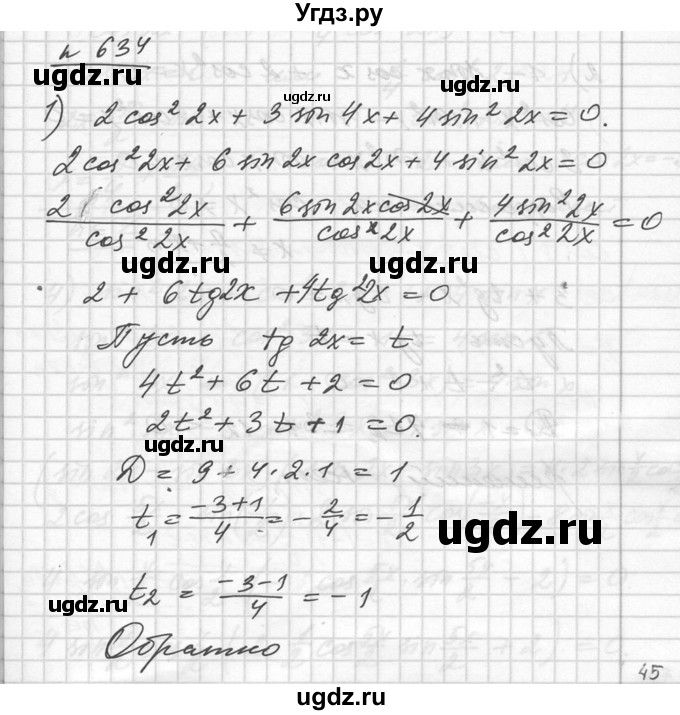 Угдз.ру
n 634
ugdz.ru
ugdz.ru
ugdz.ru
1) 2 cos² 2x + 3 sin 4x + 4 sin² 2x = 0.
2 cos² 2x + 6 sin 2x cos 2x + 4 sin² 2x = 0
2 cos² 2x / cos² 2x + 6 sin 2x cos 2x / cos² 2x + 4 sin² 2x / cos² 2x = 0
ugdz.ru
ugdz.ru
2 + 6 tg 2x + 4 tg² 2x = 0
Пусть tg 2x = t
4t² + 6t + 2 = 0
2t² + 3t + 1 = 0.
ugdz.ru
Д = 9 - 4 · 2 · 1 = 1
t₁ = (-3+1)/4 = - 2/4 = - 1/2
ugdz.ru
t₂ = (-3-1)/4 = -1
ugdz.ru
ugdz.ru
Обратно
45
ugdz.ru